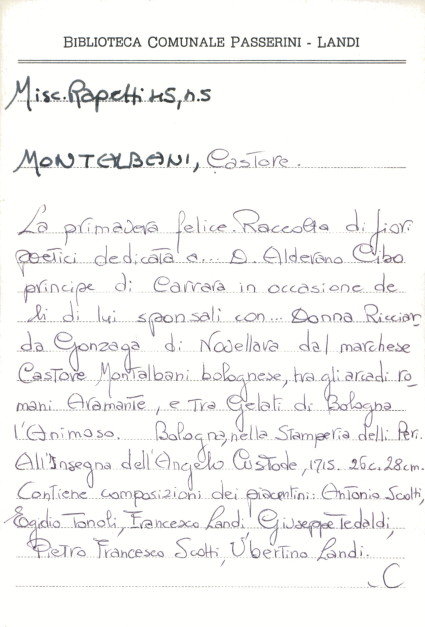 BIBLIOTECA COMUNALE PASSERINI - LANDI
Misc. Rapetti 45, n.5
MONTALBANI, Castore.
La primavera felice. Raccolta di fiori
poetici dedicata a... D. Alderano Cibo
principe di Carrara in occasione de
li di lui sponsali con... Donna Ricciar-
da Gonzaga di Novellara dal marchese
Castore Montalbani bolognese, tra gli arcadi ro-
mani Aramante, e tra Gelati di Bologna
l'Animoso. Bologna, nella Stamperia delli Peri.
All'Insegna dell'Angelo Custode, 1715. 26c. 28cm.
Contiene composizioni dei piacentini: Antonio Scotti,
Egidio Tonoli, Francesco Landi, Giuseppe Tedaldi,
Pietro Francesco Scotti, Ubertino Landi.
C